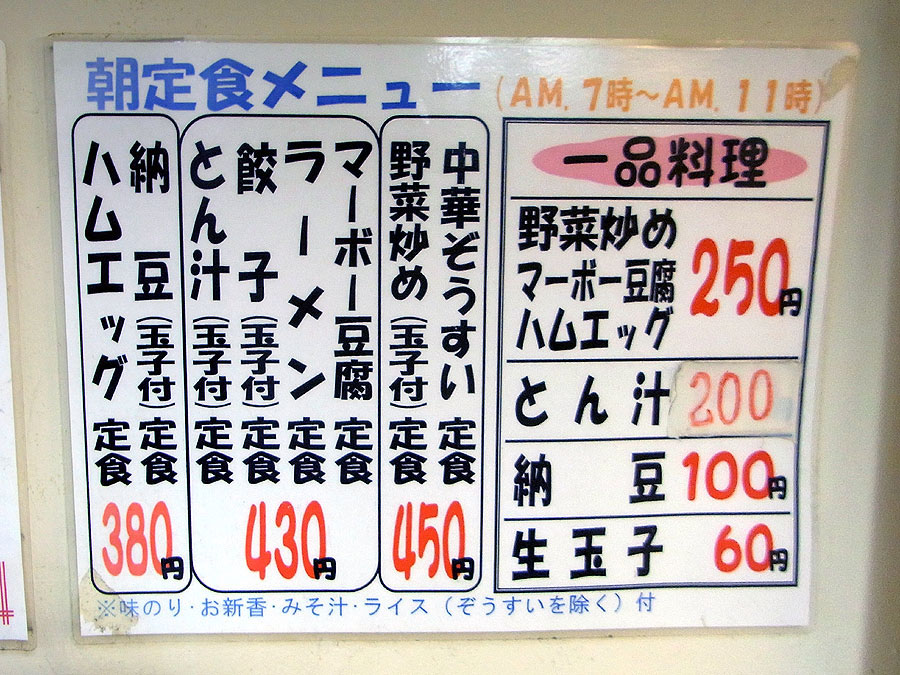 朝定食メニュー（AM.7時～AM.11時）
中華ぞうすい定食
野菜炒め（玉子付）定食
450円
マーボー豆腐定食
ラーメン定食
餃子（玉子付）定食
とん汁（玉子付）定食
430円
納豆（玉子付）定食
ハムエッグ定食
380円
一品料理
野菜炒め
マーボー豆腐
ハムエッグ
250円
とん汁 200
納豆 100円
生玉子 60円
※味のり・お新香・みそ汁・ライス（ぞうすいを除く）付